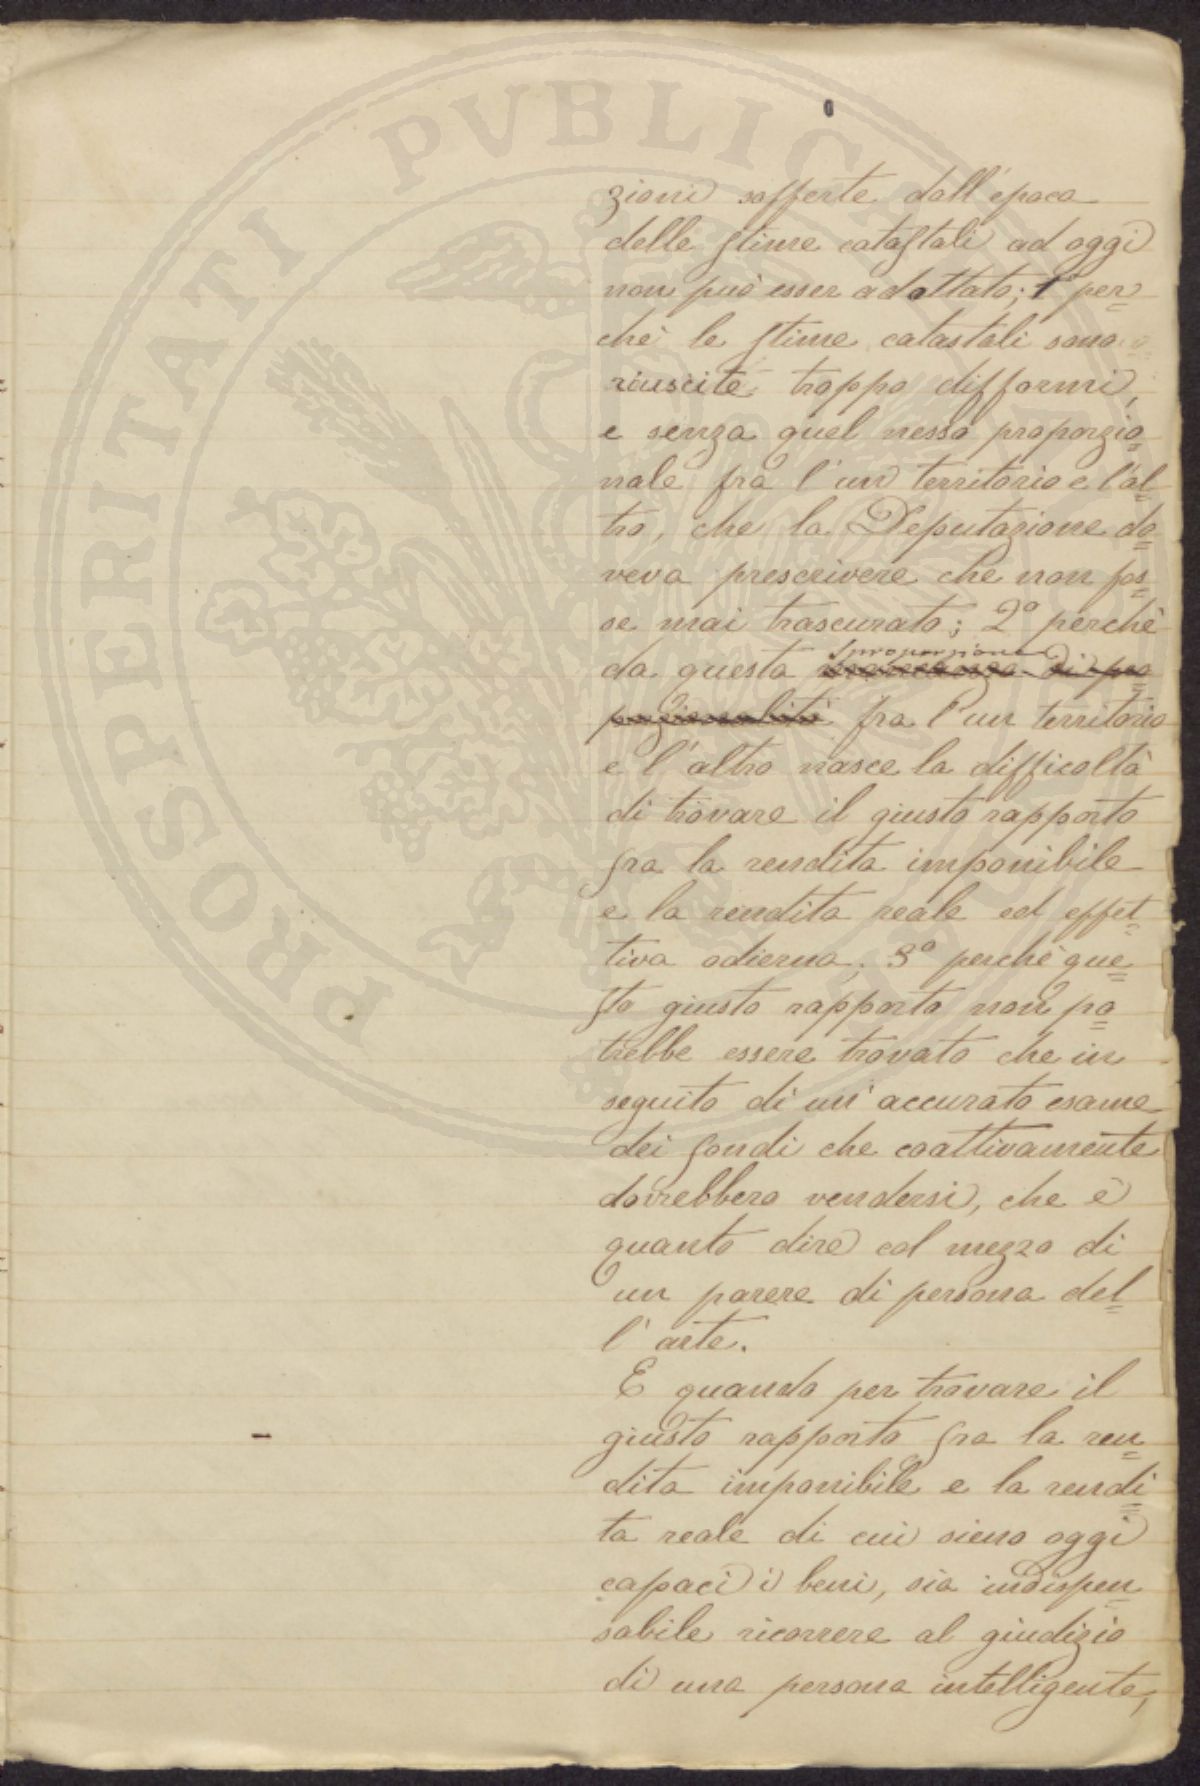 zioni sofferte dall'epoca
delle stime catastali ad oggi
non può esser adottato; 1° per=
chè le stime catastali sono
riuscite troppo difformi,
e senza quel nesso proporzio=
nale fra l'un territorio e l'al=
tro, che la Deputazione do=
veva prescrivere che non fos=
se mai trascurato; 2° perchè
sproporzione
da questa mancanza di pro=
porzionalità fra l'un territorio
e l'altro nasce la difficoltà
di trovare il giusto rapporto
fra la rendita imponibile
e la rendita reale ed effet=
tiva odierna; 3° perchè que=
sto giusto rapporto non po=
trebbe essere trovato che in
seguito di un'accurato esame
dei fondi che coattivamente
dovrebbero vendersi, che è
quanto dire col mezzo di
un parere di persona del=
l'arte.
E quando per trovare il
giusto rapporto fra la ren=
dita imponibile e la rendi=
ta reale di cui sieno oggi
capaci i beni, sia indispen=
sabile ricorrere al giudizio
di una persona intelligente,
PROSPERITATI PVBLICAE